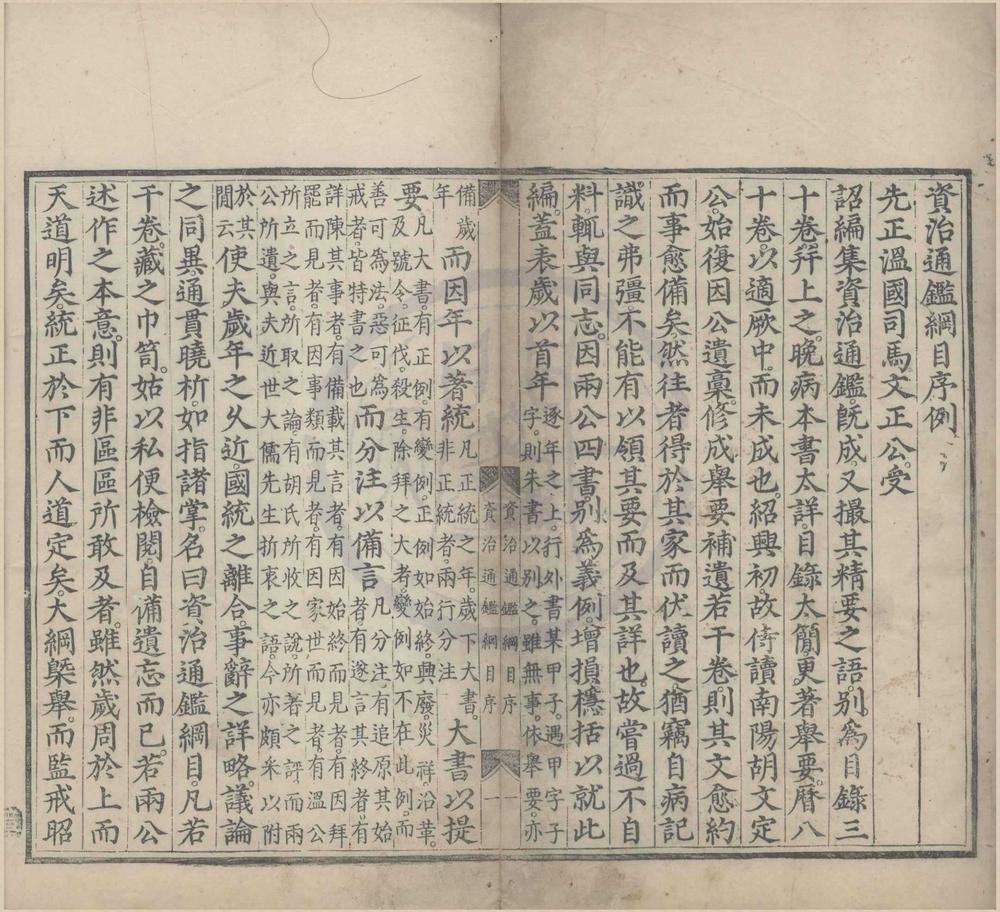 資治通鑑綱目序例
先正溫國司馬文正公受
詔編集資治通鑑既成又撮其精要之語別為目錄三
十卷并上之晚病本書太詳目錄太簡更著舉要曆八
十卷以適厥中而未成也紹興初故侍讀南陽胡文定
公始復因公遺稾修成舉要補遺若干卷則其文愈約
而事愈備矣然往者得於其家而伏讀之猶竊自病記
識之弗彊不能有以領其要而及其詳也故嘗過不自
料輒與同志因兩公四書別為義例增損檃括以就此
編蓋表歲以首年逐年之上行外書某甲子遇甲字子字則朱書以別之雖無事依舉要亦
資治通鑑綱目序
資治通鑑綱目序
一
備歲年而因年以著統凡正統之年歲下大書非正統者兩行分注大書以提
要凡大書有正例有變例正例如始終興廢災祥沿革及號令征伐殺生除拜之大者變例如不在此例而
善可為法惡可為戒者皆特書之也而分注以備言凡分注有追原其始者有遂言其終者有
詳陳其事者有備載其言者有因始終而見者有因拜罷而見者有因事類而見者有因家世而見者有溫公
所立之言所取之論有胡氏所收之說所著之評而兩公所遺與夫近世大儒先生折衷之語今亦頗采以附
於其閒云使夫歲年之久近國統之離合事辭之詳略議論
之同異通貫曉析如指諸掌名曰資治通鑑綱目凡若
干卷藏之巾笥姑以私便檢閱自備遺忘而已若兩公
述作之本意則有非區區所敢及者雖然歲周於上而
天道明矣統正於下而人道定矣大綱槩舉而監戒昭